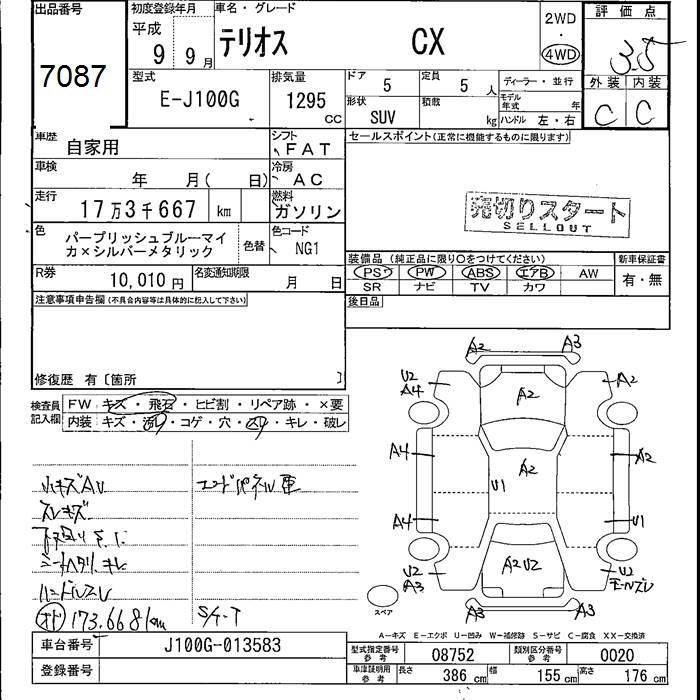 出品番号
7087
初度登録年月
平成
9 年 9 月
車名・グレード
テリオス CX
2WD
・
4WD
評価点
3.5
外装 内装
C C
型式
E-J100G
排気量
1295 CC
ドア
5
定員
5 人
形状
SUV
積数
kg
ディーラー・並行
モデル年式 年
ハンドル 左・右
車歴
自家用
シフト
FAT
車検
年 月( 日)
冷房
AC
走行
17万3千667 km
燃料
ガソリン
色
パープリッシュブルーマイ
カ×シルバーメタリック
色替
色コード
NG1
R券
10,010 円
名変通知期限
月 日
セールスポイント(正常に機能するものに限ります)
売切りスタート
SELLOUT
装備品 (純正品に限り○をつけてください)
PS PW ABS エアB AW
SR ナビ TV カワ
新車保証書
有・無
後日品
注意事項申告欄(不具合内容等は具体的に記入して下さい)
修復歴 有〔箇所 〕
検査員
記入欄
FW キズ・飛石・ヒビ割・リペア跡・×要
内装 キズ・汚れ・コゲ・穴・スレ・キレ・破レ
小キズAU
エンドパネル 車
スレキズ
シートヘタリ、キレ
ハンドルスレ
オド 173.668km
S/T-T
A2 A3
U2
A4
A2
A2
A4
A2
A2
U1
A4
U1
A2 U2
U2
A3
U2
モールズレ
A3 A3
スペア
A-キズ E-エクボ U-凹み W-補修跡 S-サビ C-腐食 XX-交換済
車台番号
J100G-013583
登録番号
型式指定番号
参考
08752
類別区分番号
参考
0020
車庫証明用
参考
長さ 386 cm 幅 155 cm 高さ 176 cm